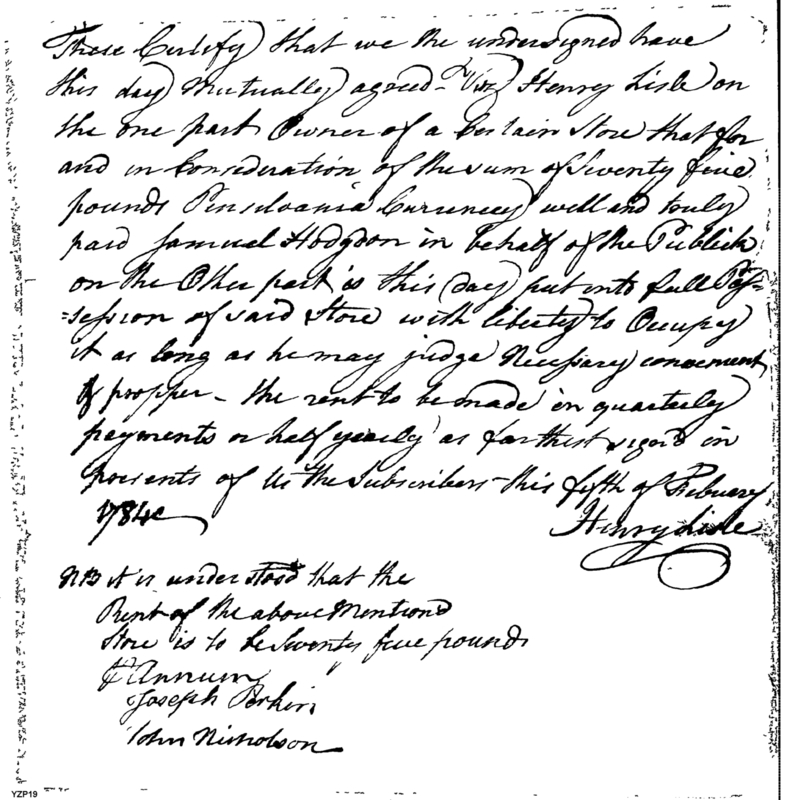 These Certify that we the undersigned have
this day Mutually agreed - Viz Henry Lisle on
the one part Owner of a Certain Store that for
and in Consideration of the sum of Seventy five
pounds Pensilvania Currencey well and truly
paid Samuel Hodgdon in behalf of the Publick
on the Other part is this day put into full Pos=
=session of said Store with liberty to Occupy
it as long as he may judge Necessary convenient
& propper - the rent to be made in quarterly
payments or half yearly as farthest sign'd in
presents of Us the Subscribers this fifth of Febuary
1784
Henry Lisle
NB it is understood that the
Rent of the above Mentiond
Store is to be Seventy five pounds
P Annum
Joseph Perkin
John Nicholson
YZP19